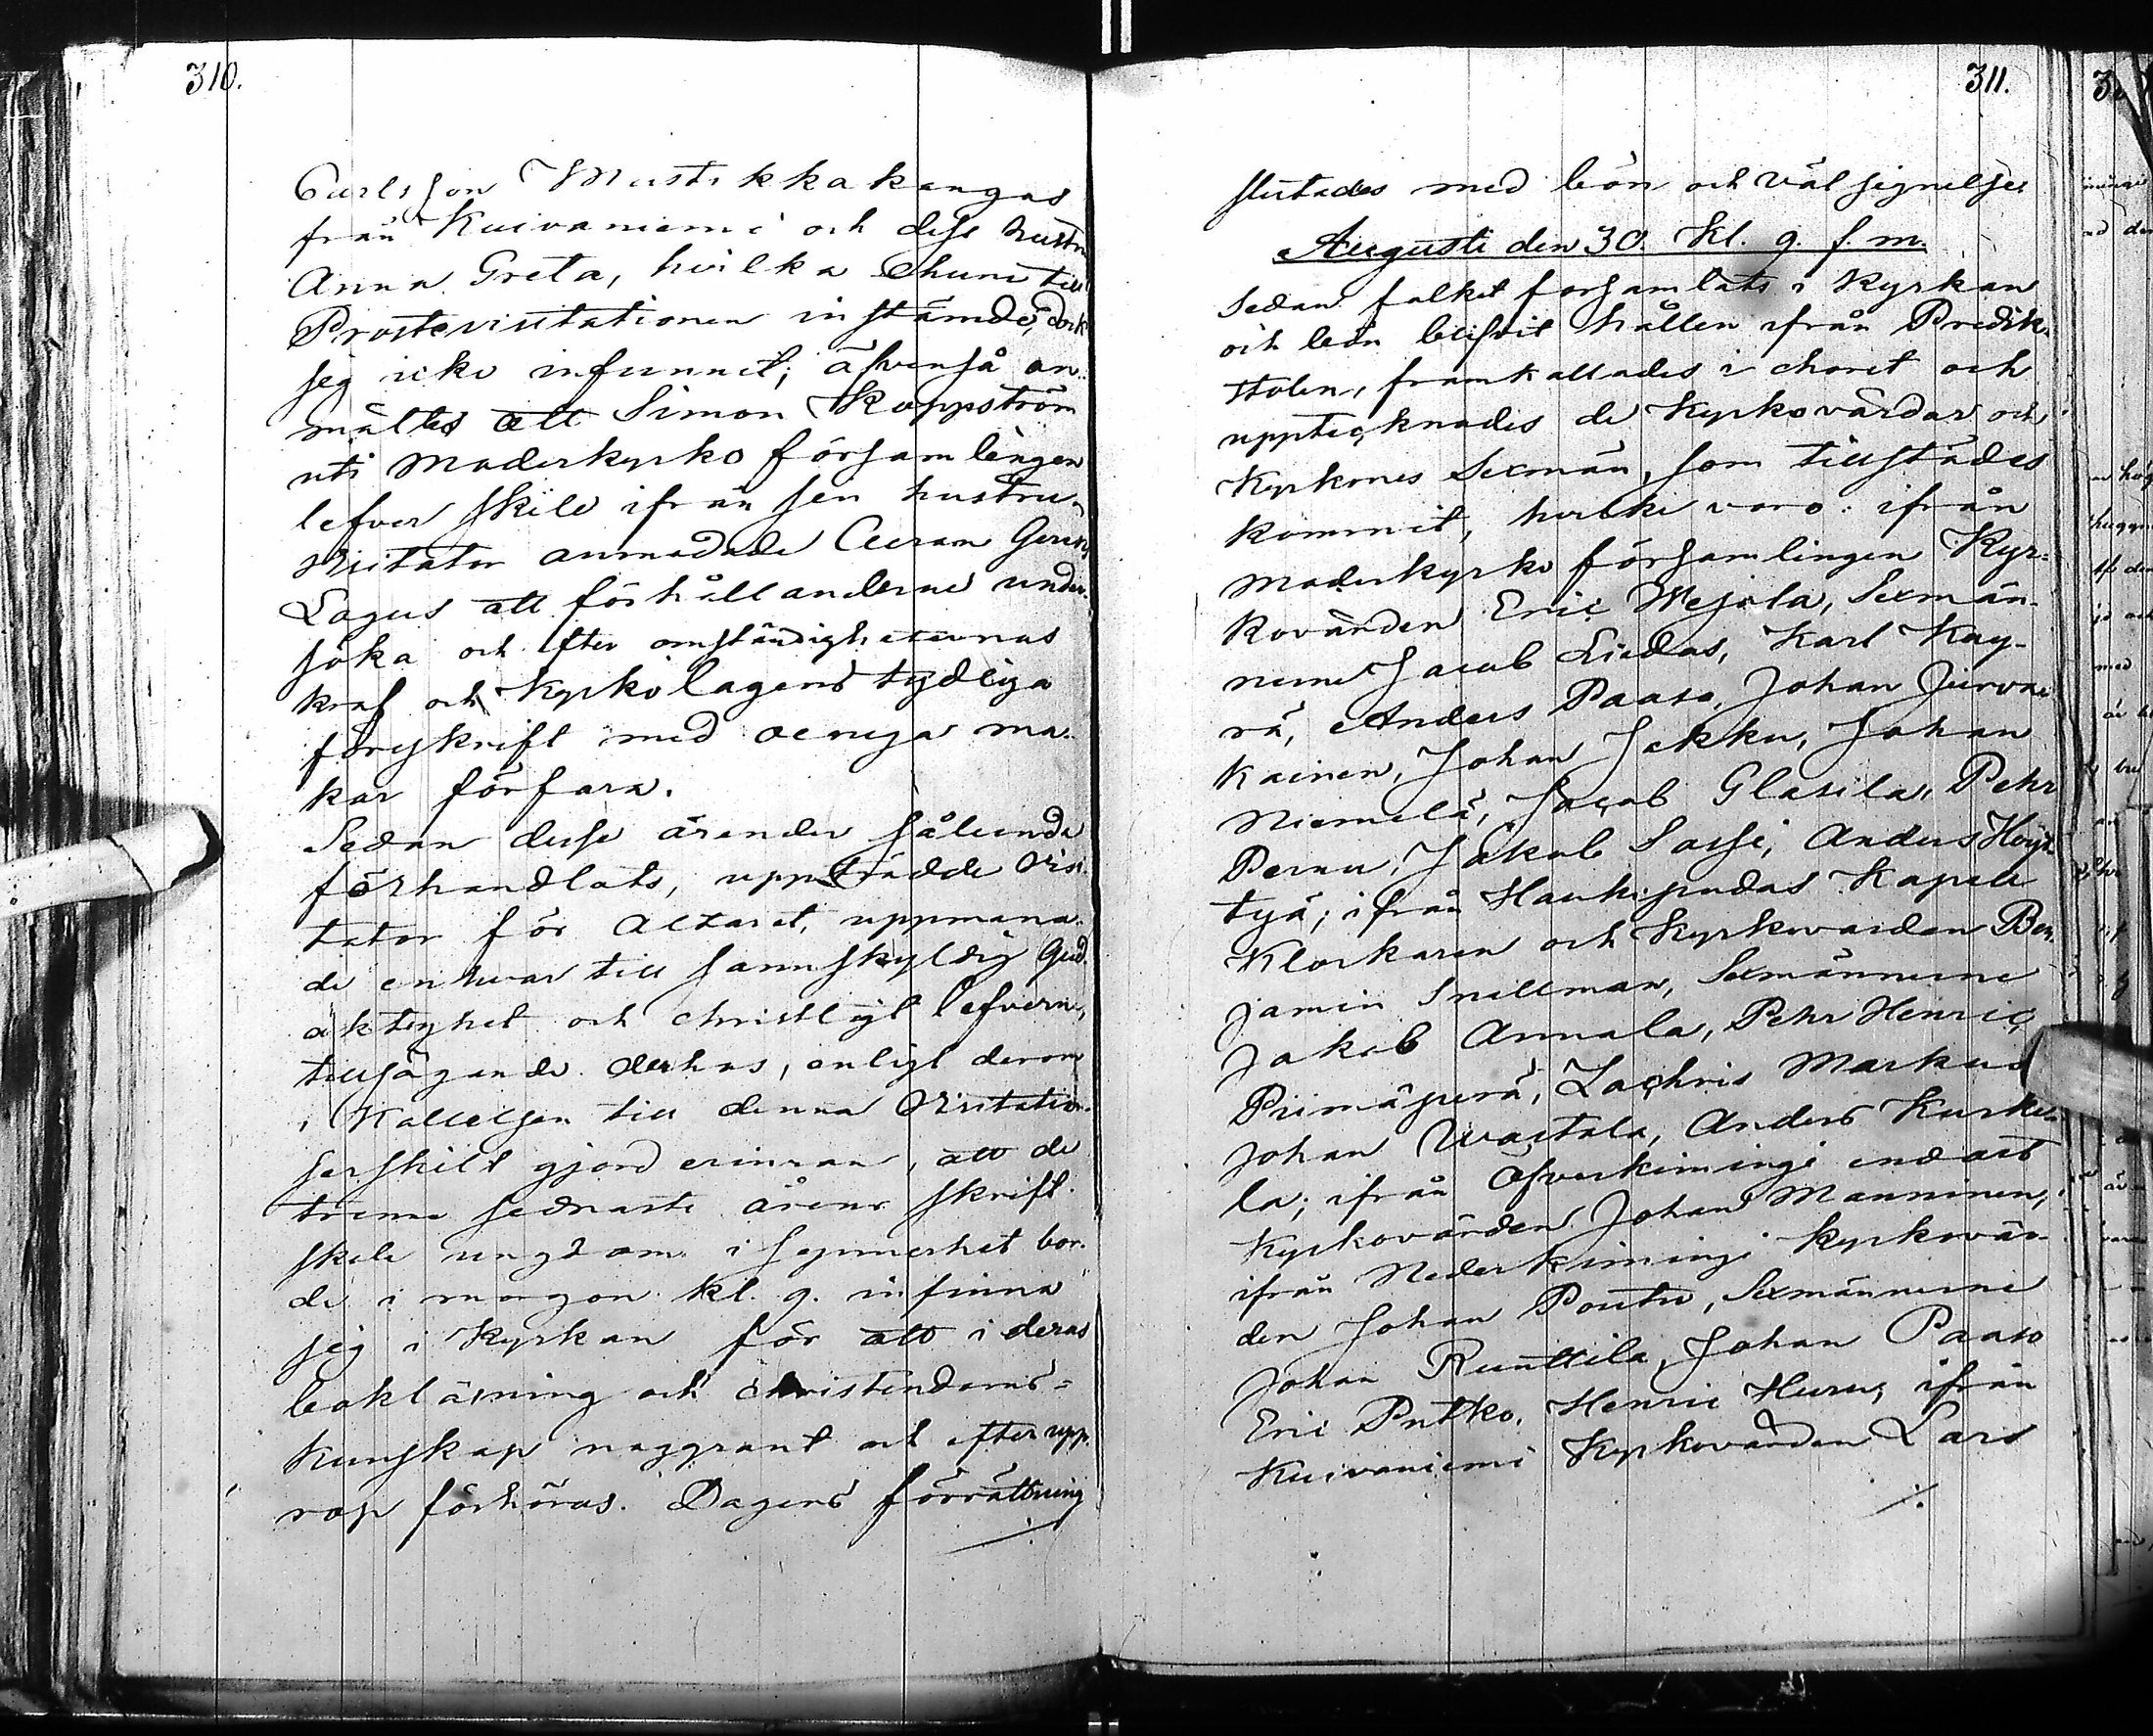 310.
Carlsson Mustikkakangas
från Kuivaniemi och dess hustru
Anna Greta, hvilka ehuru till
Prostevisitationen instämde, dock
sig icke infunnit; äfvenså an-
mältes att Simon Koppström
uti Moderkyrko församlingen
lefver skild ifrån sin hustru.
Visitator anmodade
Lagus att förhållanderne under-
söka och efter omständigheternas
kraf och Kyrkolagens tydliga
föreskrift med oeniga ma-
kar förfara.
Sedan desse ärender sålunda
förhandlats, uppträdde Visi-
tator för Altaret, uppmana-
de en hvar till sannskyldig Gud-
aktighet och christligt lefverne,
tillsägande derhos, enligt derom
i Kallelsen till denna Visitation
serskilt gjord erinran, att de
trenne sednaste årens skrift-
skole ungdom i synnerhet bor-
de i morgon kl. 9. infinna
sig i Kyrkan för att i deras
bokläsning och christendoms-
kunskap noggrant och efter upp-
rop förhöras. Dagens förrättning
./.
311.
slutades med bön och välsignelse.
Augusti den 30. Kl. 9. f. m.
Sedan folket församlats i Kyrkan
och bön blifvit hållen ifrån Predik-
stolen, framkallades i choret och
upptecknades de Kyrkovärdar och
Kyrkones Sexmän, som tillstädes
kommit, hvilka voro: ifrån
Moderkyrko församlingen Kyr-
kovärden Eric Wejola, Sexmän-
nerne Jacob Liedas, Karl Kay-
rä, Anders Paaso, Johan Jurva-
kainen, Johan Jakku, Johan
Niemelä, Jacob Glasila, Pehr
Pernu, Jakob Sassi, Anders Höyh-
tyä; ifrån Haukipudas Kapell
Klockaren och Kyrkovärden Ben-
jamin Snellman, Sexmännerne
Jakob Annala, Pehr Henric
Piimäperä, Zachris Markus
Johan Wartala, Anders Kurke-
la; ifrån Öfverkiminge endast
Kyrkovärden Johan Manninen;
ifrån Nederkiminge Kyrkovär-
den Johan Poutu, Sexmännerne
Johan Runttila, Johan Paaso
Eric Putko, Henric Huru; ifrån
Kuivaniemi Kyrkovärden Lars
./.